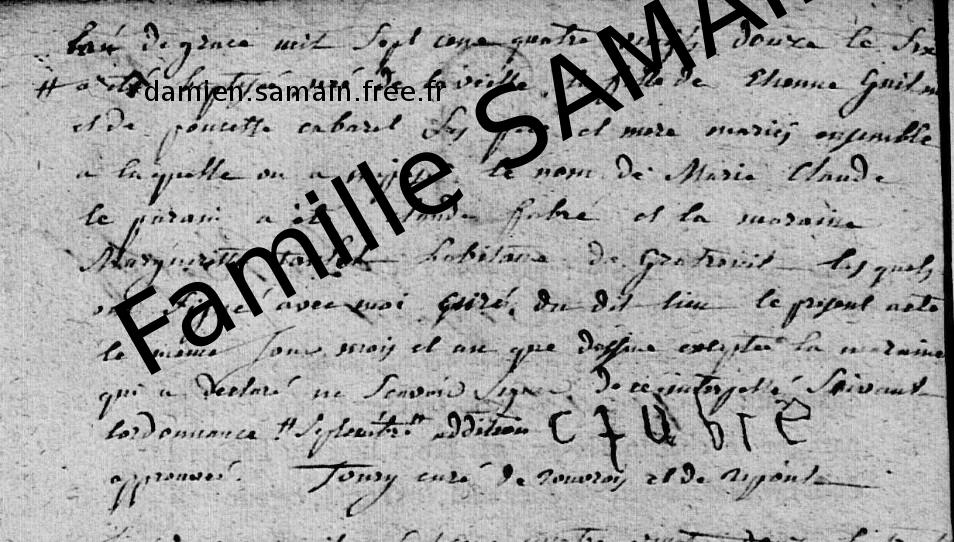 Lan de grace mil Sept cens quatre vingts douze le Six
# a été baptisé né de la veille la fille de Etienne
et de poncette cabaret Ses pere et mere mariés ensemble
a laquelle on a imposé le nom de Marie Claude
le parain a été Claude fabre et la maraine
Margueritte habitans de lesquels
ont signé avec moi curé du dit lieu le present acte
le même Jour mois et an que dessus exceptée la maraine
qui a declaré ne Scavoir Signer de ce interpellé Suivant
lordonnance # Septembre # addition c f a b r e
approuvée. Toury curé de rouvrois et de
damien.samain.free.fr
Famille SAMAI